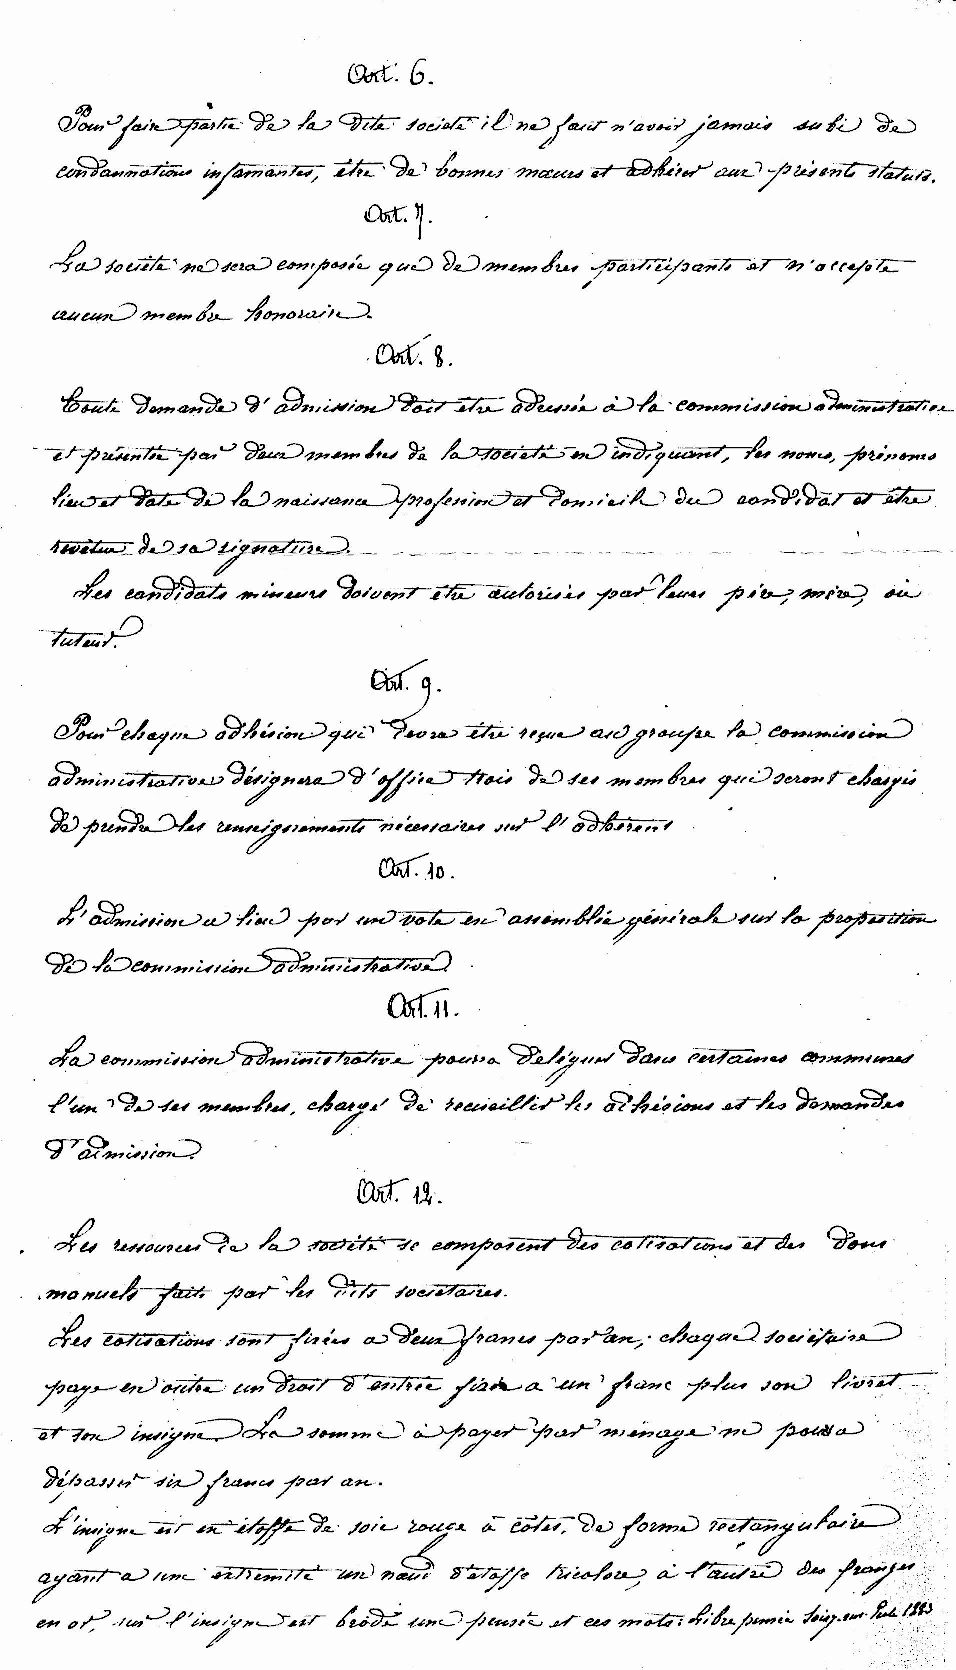 Art. 6.
Pour faire partie de la dite societé il ne faut n'avoir jamais subi de
condannations infamantes, être de bonnes mœurs et adhérer aux présents statuts.
Art. 7.
La societé ne sera composée que de membres participants et n'accepte
aucun membre honoraire.
Art. 8.
Toute demande d'admission doit être adressée à la commission administrative
et présentée par deux membres de la societé en indiquant, les noms, prénoms
lieu et date de la naissance profession et domicile du candidat et être
revêtue de sa signature.
Les candidats mineurs doivent être autorisés par leurs père, mère, ou
tuteur.
Art. 9.
Pour chaque adhésion qui devra être reçue au groupe la commission
administrative désignera d'office trois de ses membres qui seront chargés
de prendre les renseignements nécessaires sur l'adhérent
Art. 10.
L'admission a lieu par un vote en assemblée générale sur la proposition
de la commission administrative.
Art. 11.
La commission administrative pourra déléguer dans certaines communes
l'un de ses membres, chargé de recueillir les adhésions et les demandes
d'admission.
Art. 12.
Les ressources de la société se composent des cotisations et des dons
manuels faits par les dits societaires.
Les cotisations sont fixées a deux francs par an; chaque sociétaire
paye en outre un droit d'entrée fixé a un franc plus son livret
et son insigne. La somme à payer par ménage ne pourra
dépasser six francs par an.
L'insigne est en étoffe de soie rouge à côtes, de forme rectangulaire
ayant a une extremité un nœud d'étoffe tricolore, à l'autre des franges
en or, sur l'insigne est brodé une pensée et ces mots: Libre pensée Soisy-sur-École 1883